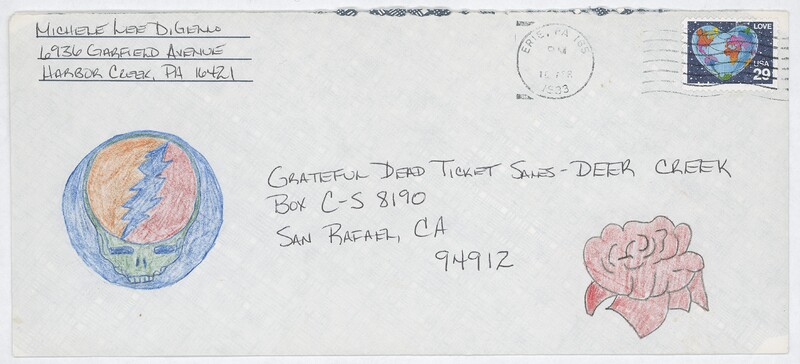 6936 Garfield Avenue
Harbor Creek, PA 16421
ERIE, PA 165
PM
1993
LOVE
USA
29
Grateful Dead Ticket Sales - Deer Creek
Box C-S 8190
San Rafael, CA
94912
Michele Lee